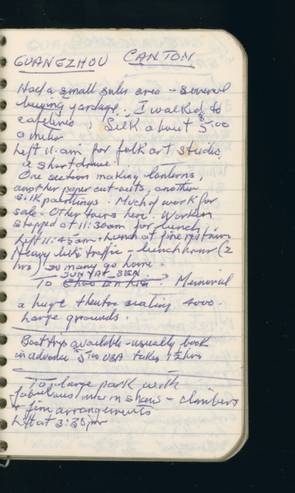 GUANGZHOU CANTON
Had a small sales area - several
buying yardage. I walked to
Silk about 5.00
a meter
Left 11 am for folk art studio,
a short drive.
One section making lanterns,
another paper cut-outs, another
silk paintings. Much of work for
sale. Other tours here. Workers
stopped at 11:30am for lunch
Left 11:45am. Lunch at fine
Heavy bike traffic - lunch hour (2
hrs) so many go home.
SUN YAT SEN
To Memorial
a huge theatre seating 4000.
Large grounds.
Boat trips available - usually book
in advance in USA takes 1 1/2 hrs
To large park with
fabulous mums - climbers
+ fine arrangements
Left at 3:35pm